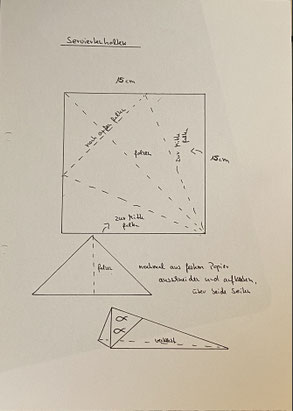 Serviettenhalter
15 cm
nach außen falten
falzen
zur Mitte falten
15 cm
zur Mitte falten
falzen
nochmal aus festem Papier
ausschneiden und aufkleben,
über beide Seiten
α
α
verklebt